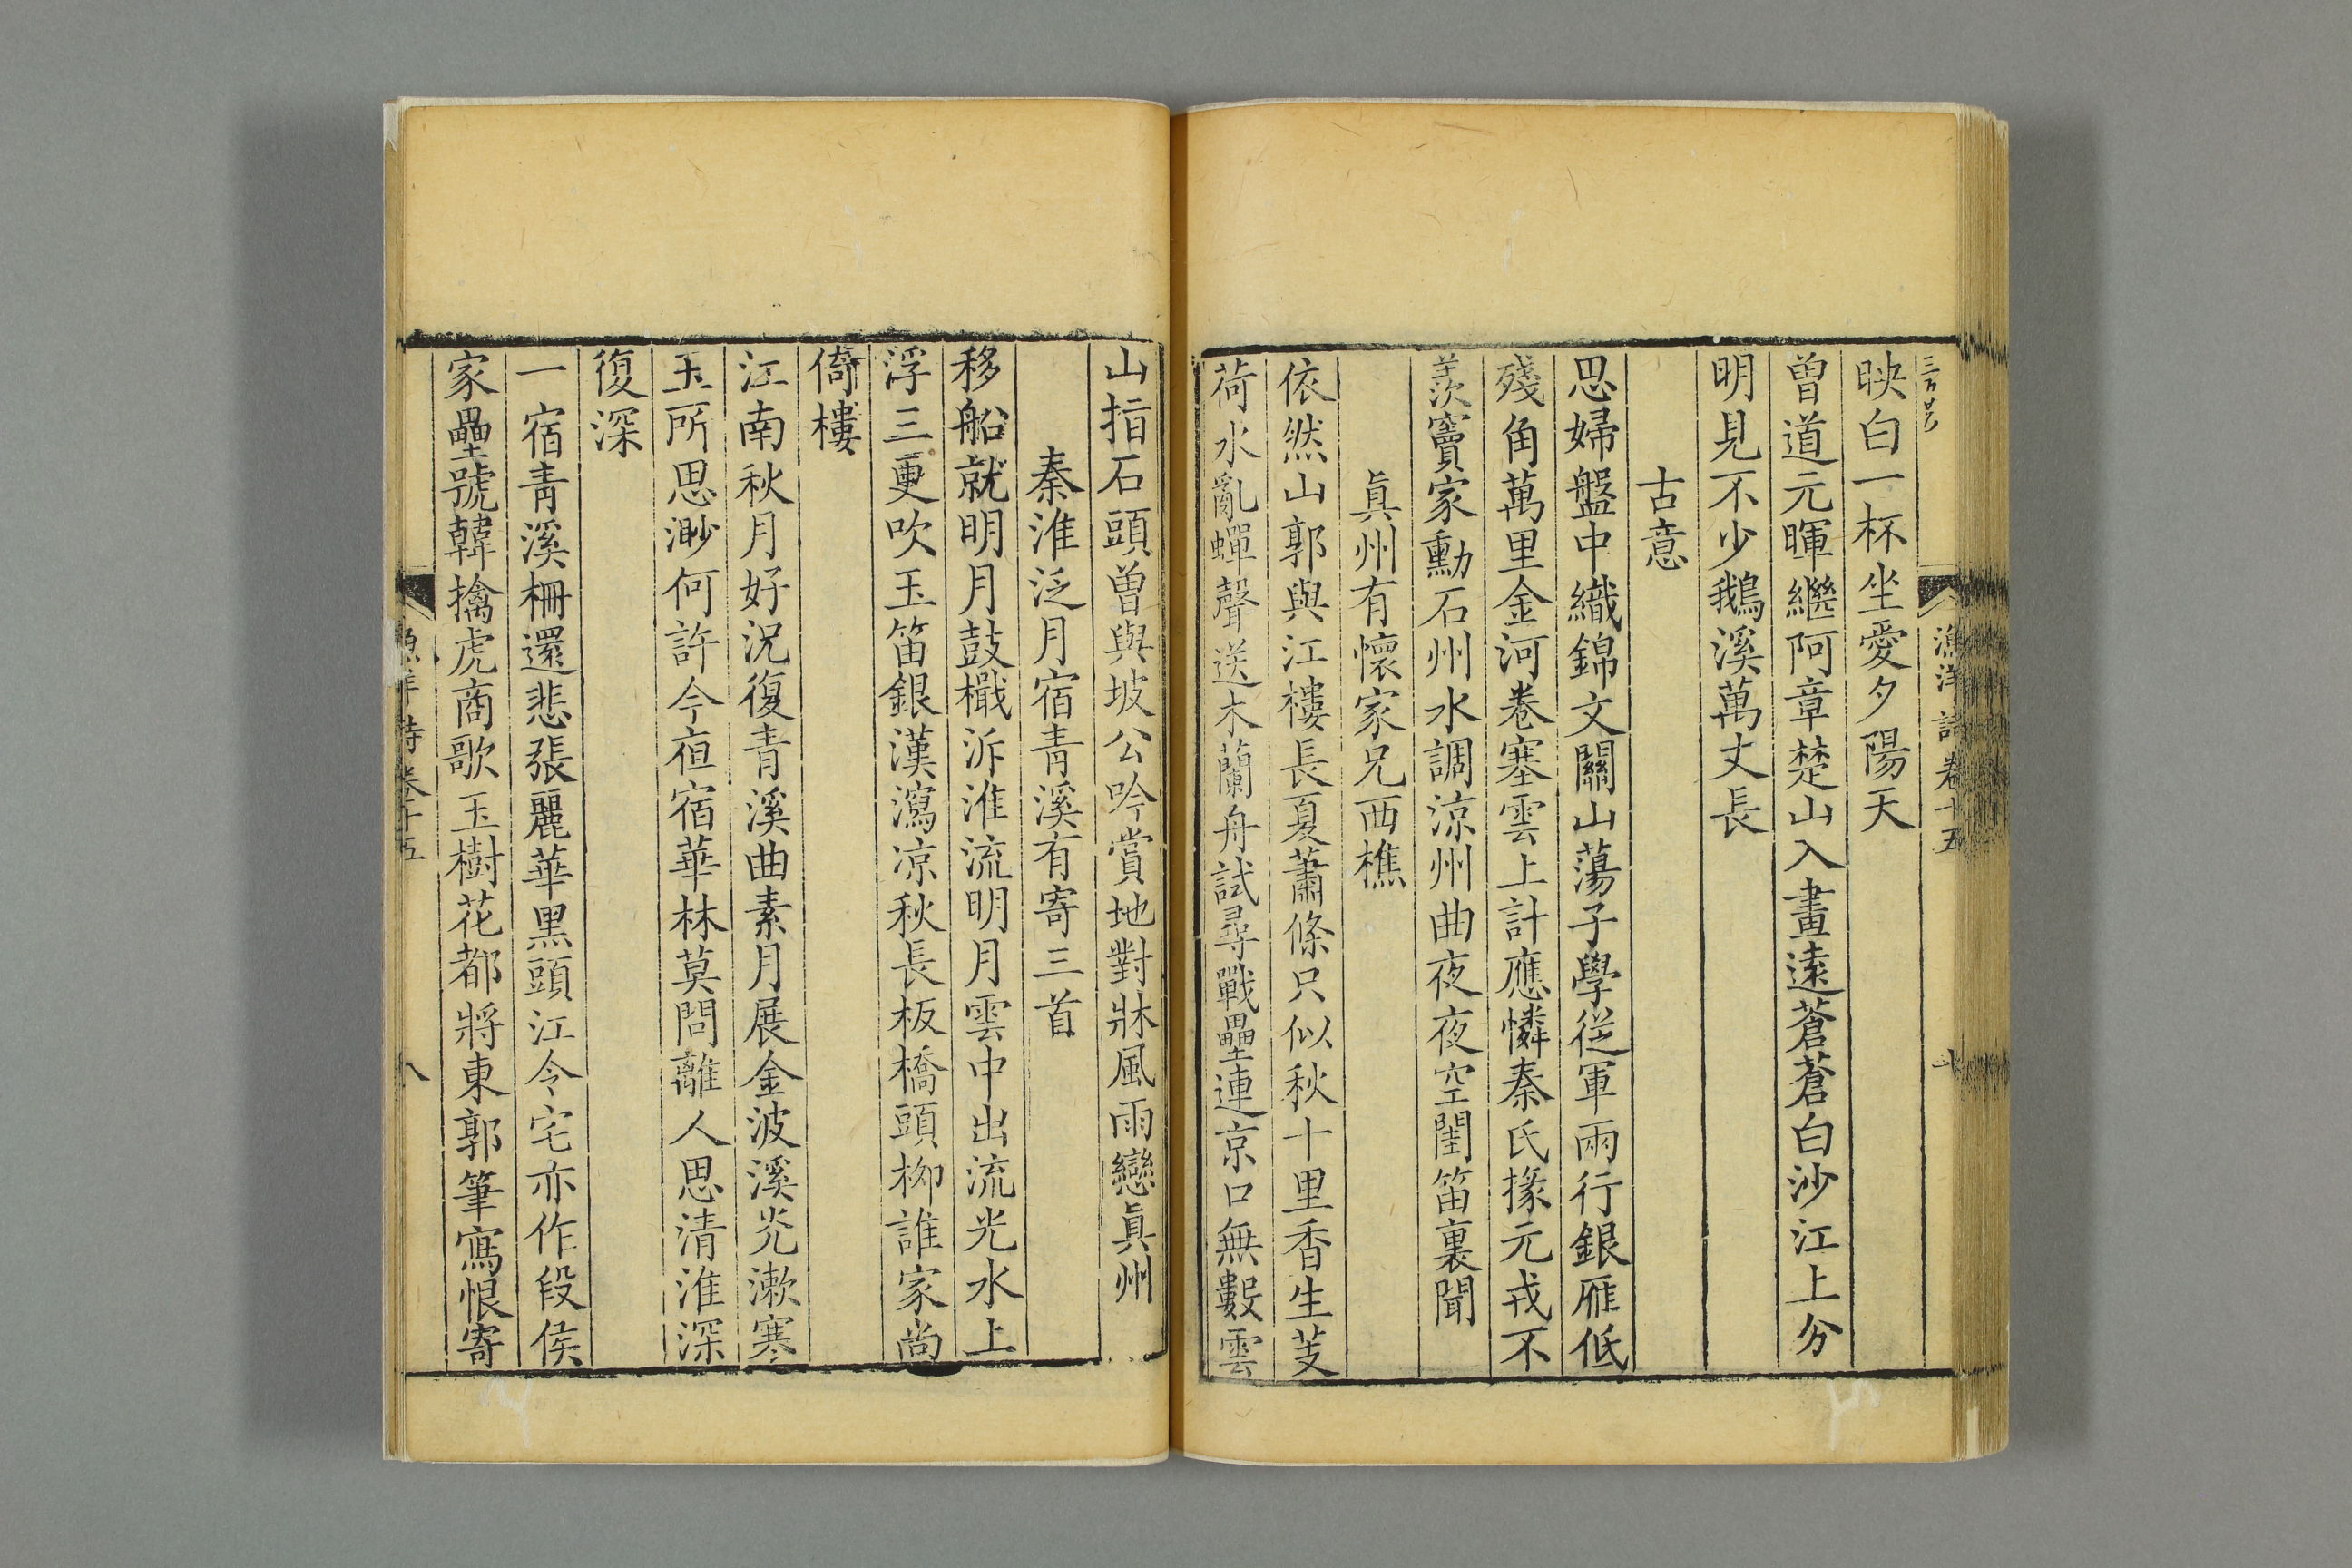 漁洋詩卷十五
映白一杯坐愛夕陽天
曾道元暉繼阿章楚山入畫遠蒼蒼白沙江上分
明見不少鵝溪萬丈長
古意
思婦盤中織錦文關山蕩子學從軍兩行銀雁低
殘角萬里金河卷塞雲上計應憐秦氏掾元戎不
羨竇家勳石州水調涼州曲夜夜空閨笛裏聞
眞州有懷家兄西樵
依然山郭與江樓長夏蕭條只似秋十里香生芰
荷水亂蟬聲送木蘭舟試尋戰壘連京口無數雲
山指石頭曾與坡公吟賞地對牀風雨戀眞州
秦淮泛月宿青溪有寄三首
移船就明月鼓檝泝淮流明月雲中出流光水上
浮三更吹玉笛銀漢瀉凉秋長板橋頭柳誰家尚
倚樓
江南秋月好況復青溪曲素月展金波溪光漱寒
玉所思渺何許今夜宿華林莫問離人思清淮深
復深
一宿青溪柵還悲張麗華黑頭江令宅亦作段侯
家壘號韓擒虎商歌玉樹花都將東郭筆寫恨寄
漁洋詩卷十五
八